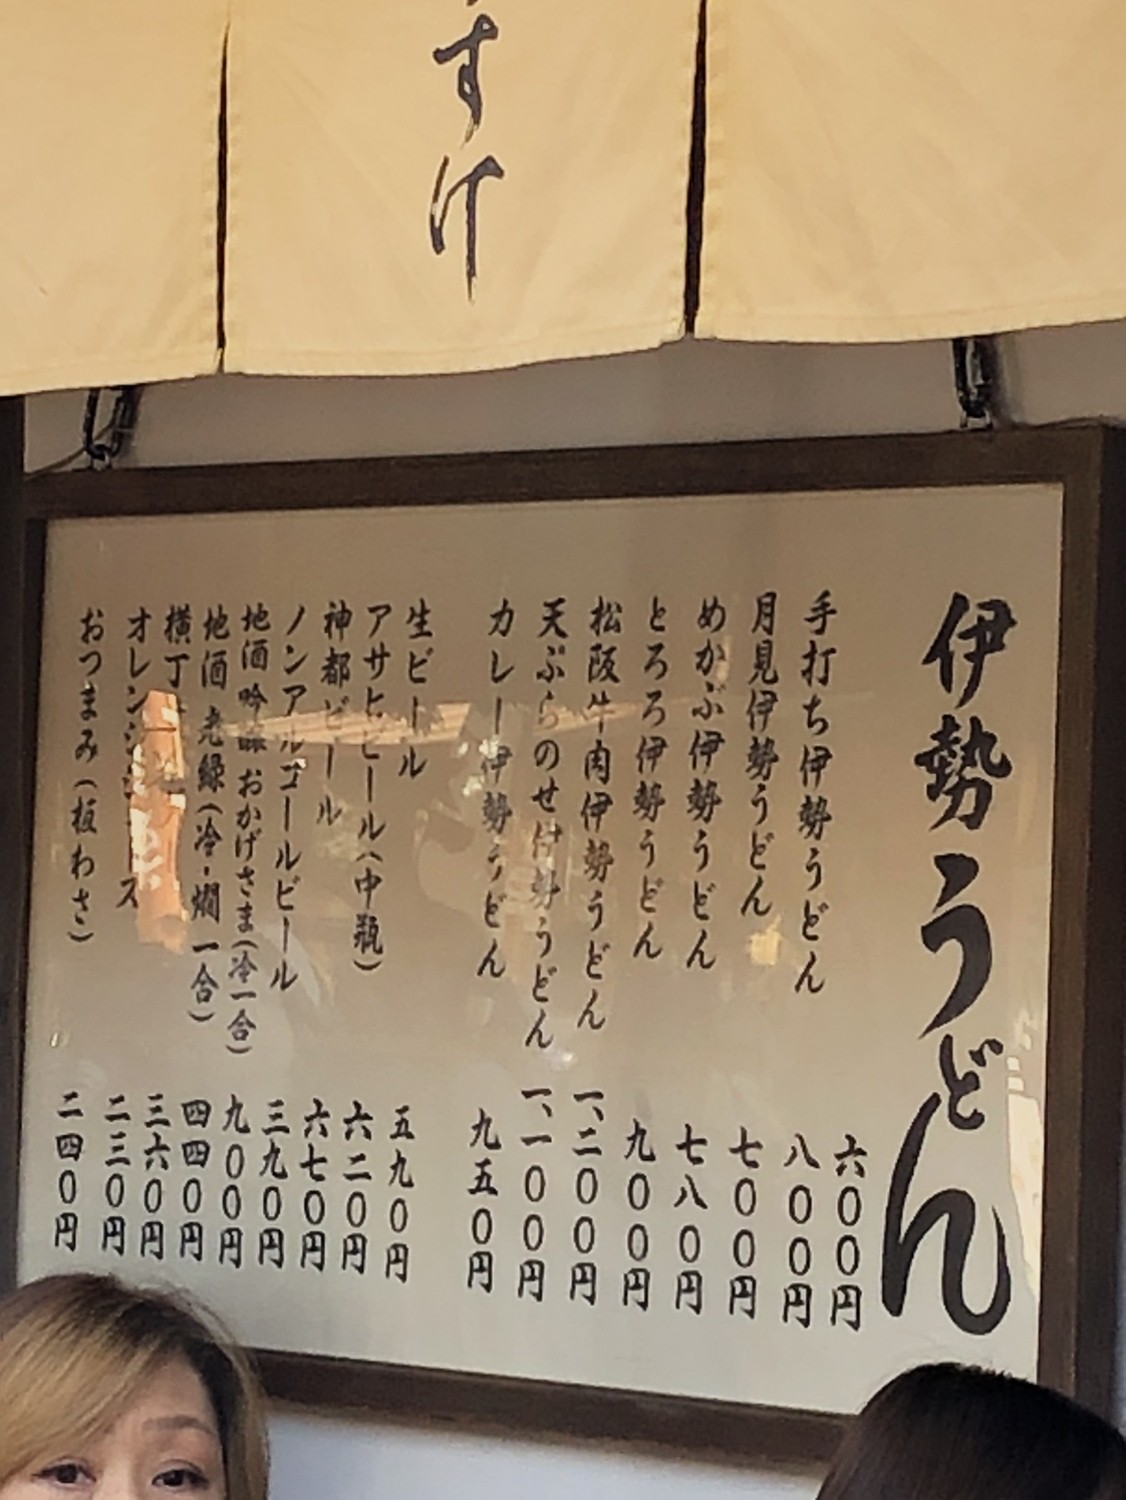 すけ
伊勢うどん 六〇〇円
手打ち伊勢うどん 八〇〇円
月見伊勢うどん 七〇〇円
めかぶ伊勢うどん 七八〇円
とろろ伊勢うどん 九〇〇円
松阪牛肉伊勢うどん 一、二〇〇円
天ぷらのせ伊勢うどん 一、一〇〇円
カレー伊勢うどん 九五〇円
生ビール 五九〇円
アサヒビール(中瓶) 六二〇円
神都ビール 六七〇円
ノンアルコールビール 三九〇円
地酒 吟醸 おかげさま(冷一合) 九〇〇円
地酒 老緑(冷・燗 一合) 四四〇円
横丁 三六〇円
オレンジジュース 二三〇円
おつまみ(板わさ) 二四〇円